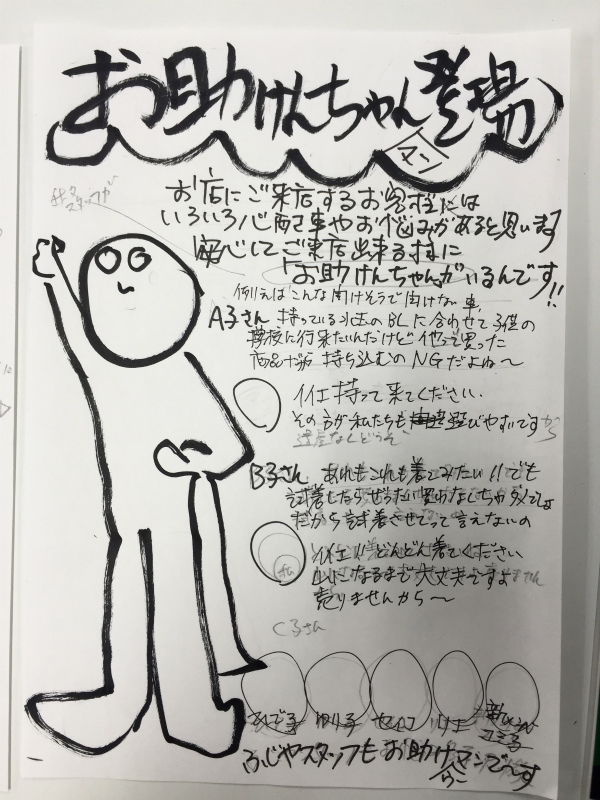 お助けんちゃんマン登場
お店にご来店するお客様には
いろいろ心配事やお悩みがあると思います
安心してご来店出来る様に
「お助けんちゃん」がいるんです!!
例えばこんな聞けそうで聞けない事、
A子さん 持っている水玉のBLに合わせて子供の
学校に行きたいんだけど 他で買った
商品だから 持ち込むのNGだよね〜
イイエ持って来てください。
その方が私たちも選びやすいですから
遠慮なくどうぞ
B子さん あれもこれも着てみたい!!でも
試着したらぜったい買わなくちゃダメでしょ
だから試着させてって言えないの
イイエ!! どんどん着てください
心になるまで大丈夫ですよ
売りませんから〜
C子さん
ひで子 ゆり子
ふじやスタッフもお助けマンで〜す